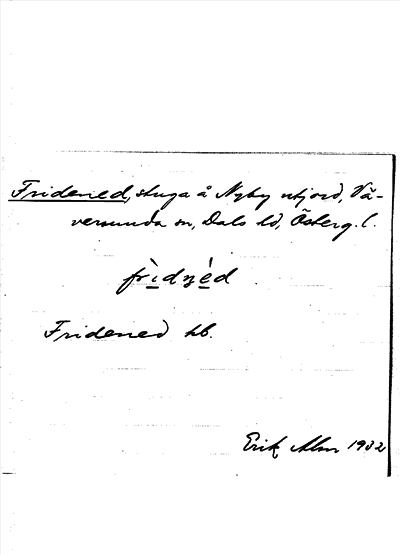 Fridened, stuga å Nyby utjord, Vä-
versunda sn, Dals hd, Österg. l.
frìdṇéd
Fridened hb.
Erik Alm 1932